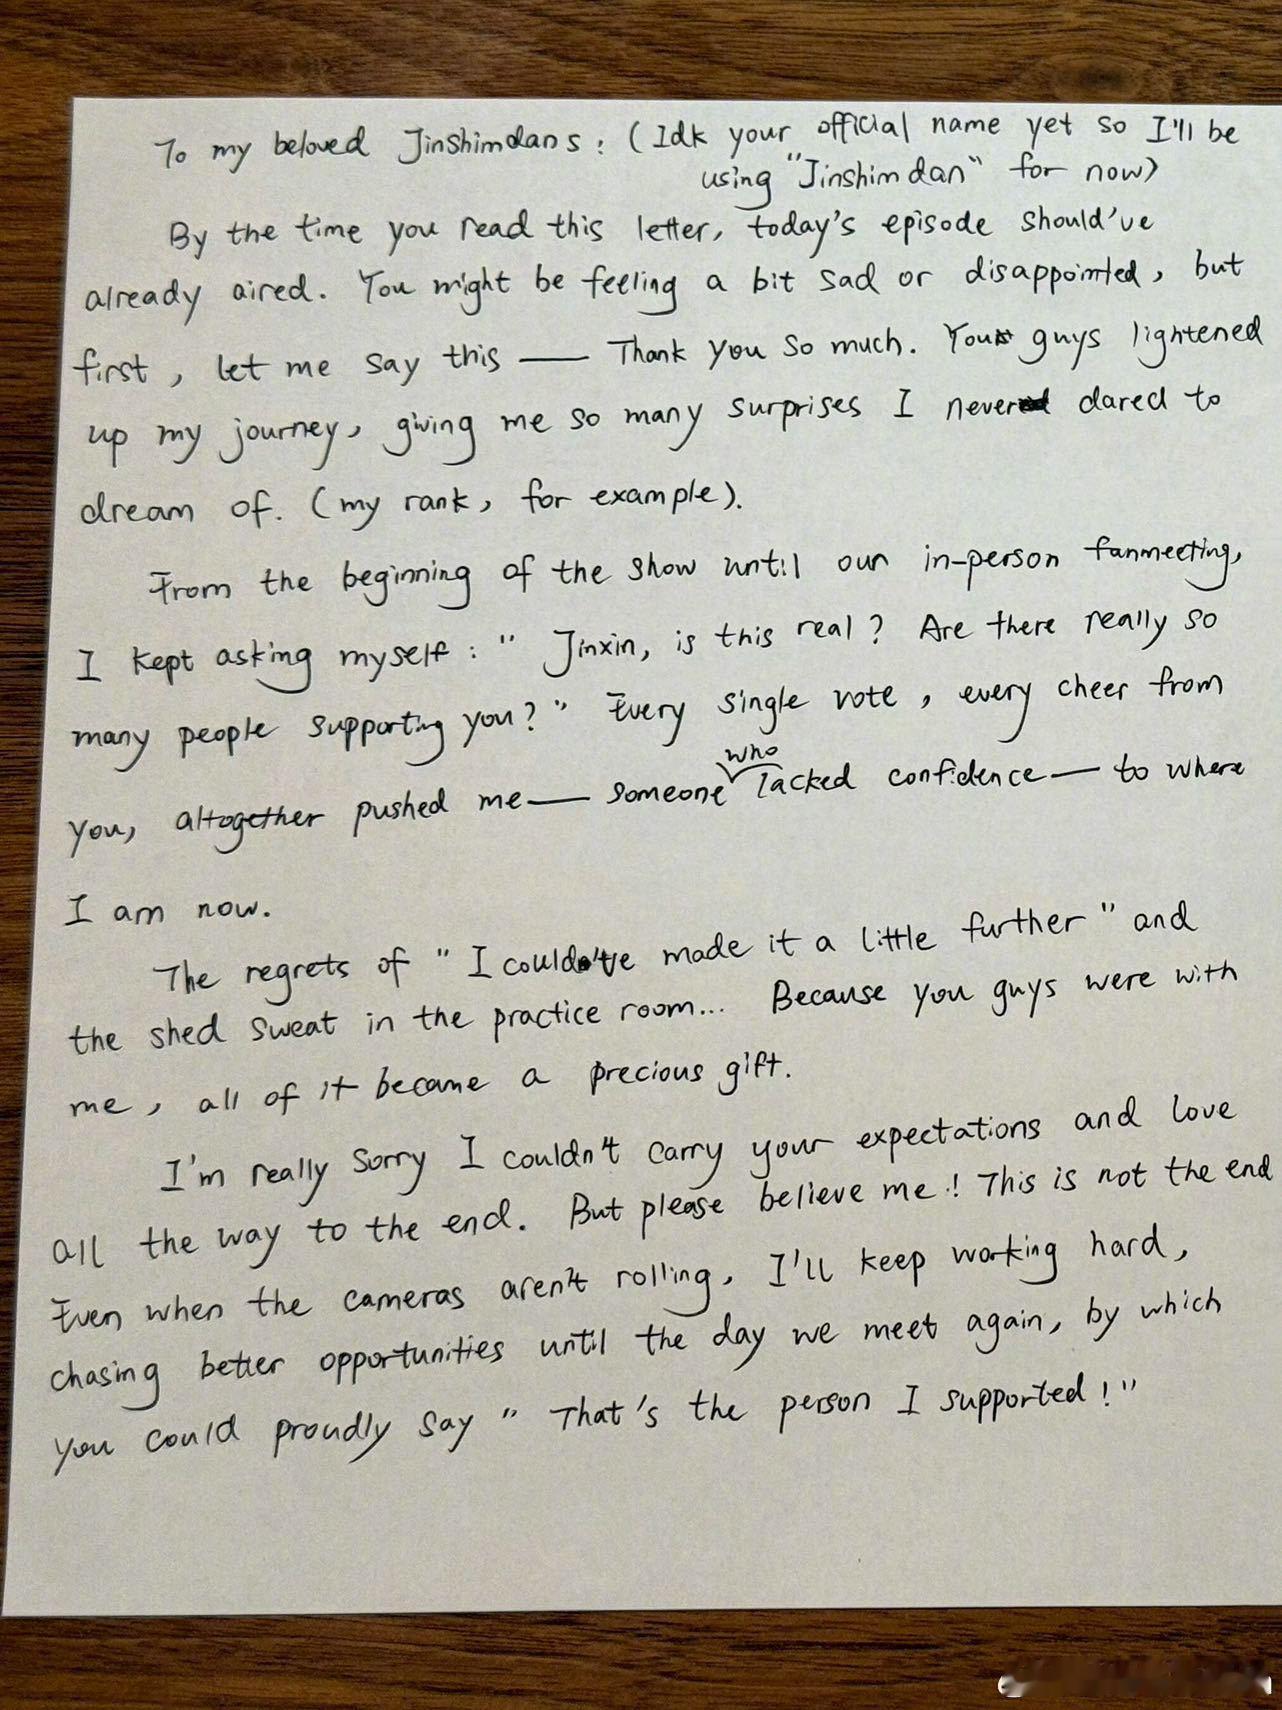 To my beloved Jinshimdans : (Idk your official name yet so I'll be
using "Jinshimdan" for now)
By the time you read this letter, today's episode should've
already aired. You might be feeling a bit sad or disappointed, but
first, let me say this —— Thank you so much. You guys lightened
up my journey, giving me so many surprises I never dared to
dream of. (my rank, for example).
From the beginning of the show until our in-person fanmeeting,
I kept asking myself : " Jinxin, is this real? Are there really so
many people supporting you? " Every single vote, every cheer from
you, altogether pushed me —— someone who lacked confidence —— to where
I am now.
The regrets of " I could've made it a little further " and
the shed sweat in the practice room... Because you guys were with
me, all of it became a precious gift.
I'm really sorry I couldn't carry your expectations and love
all the way to the end. But please believe me! This is not the end
Even when the cameras aren't rolling, I'll keep working hard,
chasing better opportunities until the day we meet again, by which
you could proudly say " That's the person I supported! "